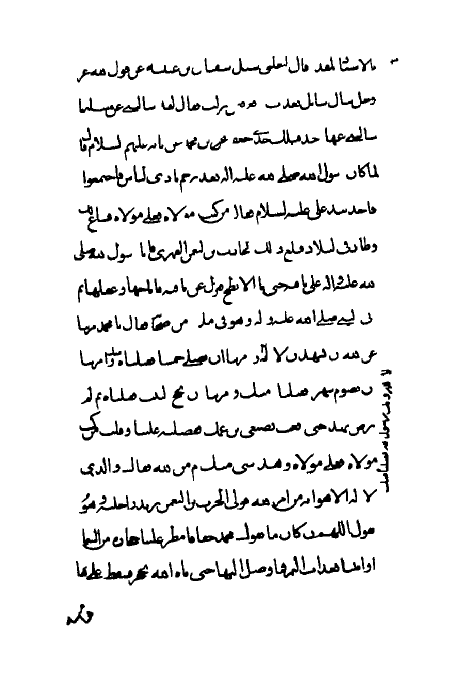 بالاسناد المقدم قال الثعلبي سئل سفيان بن عيينه عن قول الله عز
وجل سال سائل بعذاب نزلت فقال لقد سالتني عن مسئلة ما
سالني عنها احد قبلك حدثني جعفر بن محمد عن ابائه عليهم السلام قال
لما كان رسول الله صلى الله عليه واله بغدير خم نادى الناس فاجتمعوا
فاخذ بيد علي عليه السلام فقال من كنت مولاه فعلي مولاه فشاع ذلك
وطار في البلاد فبلغ ذلك الحارث بن النعمن الفهري فاتا رسول الله صلى
الله عليه واله على ناقته حتى اتا الابطح فنزل عن ناقته فاناخها وعقلها ثم
اتى النبي صلى الله عليه واله وهو في ملا من اصحابه فقال يا محمد امرتنا
عن الله ان نشهد ان لا اله وامرتنا ان نصلي خمسا فقبلناه وامرتنا
ان نصوم شهرا فقبلنا منك وامرتنا ان نحج البيت فقبلناه ثم لم
ترض بهذا حتى رفعت بضبعي بن عمك ففضلته علينا وقلت من كنت
مولاه فعلي مولاه وهذا شي منك ام من الله فقال والذي
لا اله الا هو انه من امر الله فولى الحرث بن النعمن يريد راحلته وهو
يقول اللهم ان كان ما يقول محمد حقا فامطر علينا حجاره من السما
او ائتنا بعذاب اليم فما وصل اليها حتى رماه الله بحجر فسقط على ها